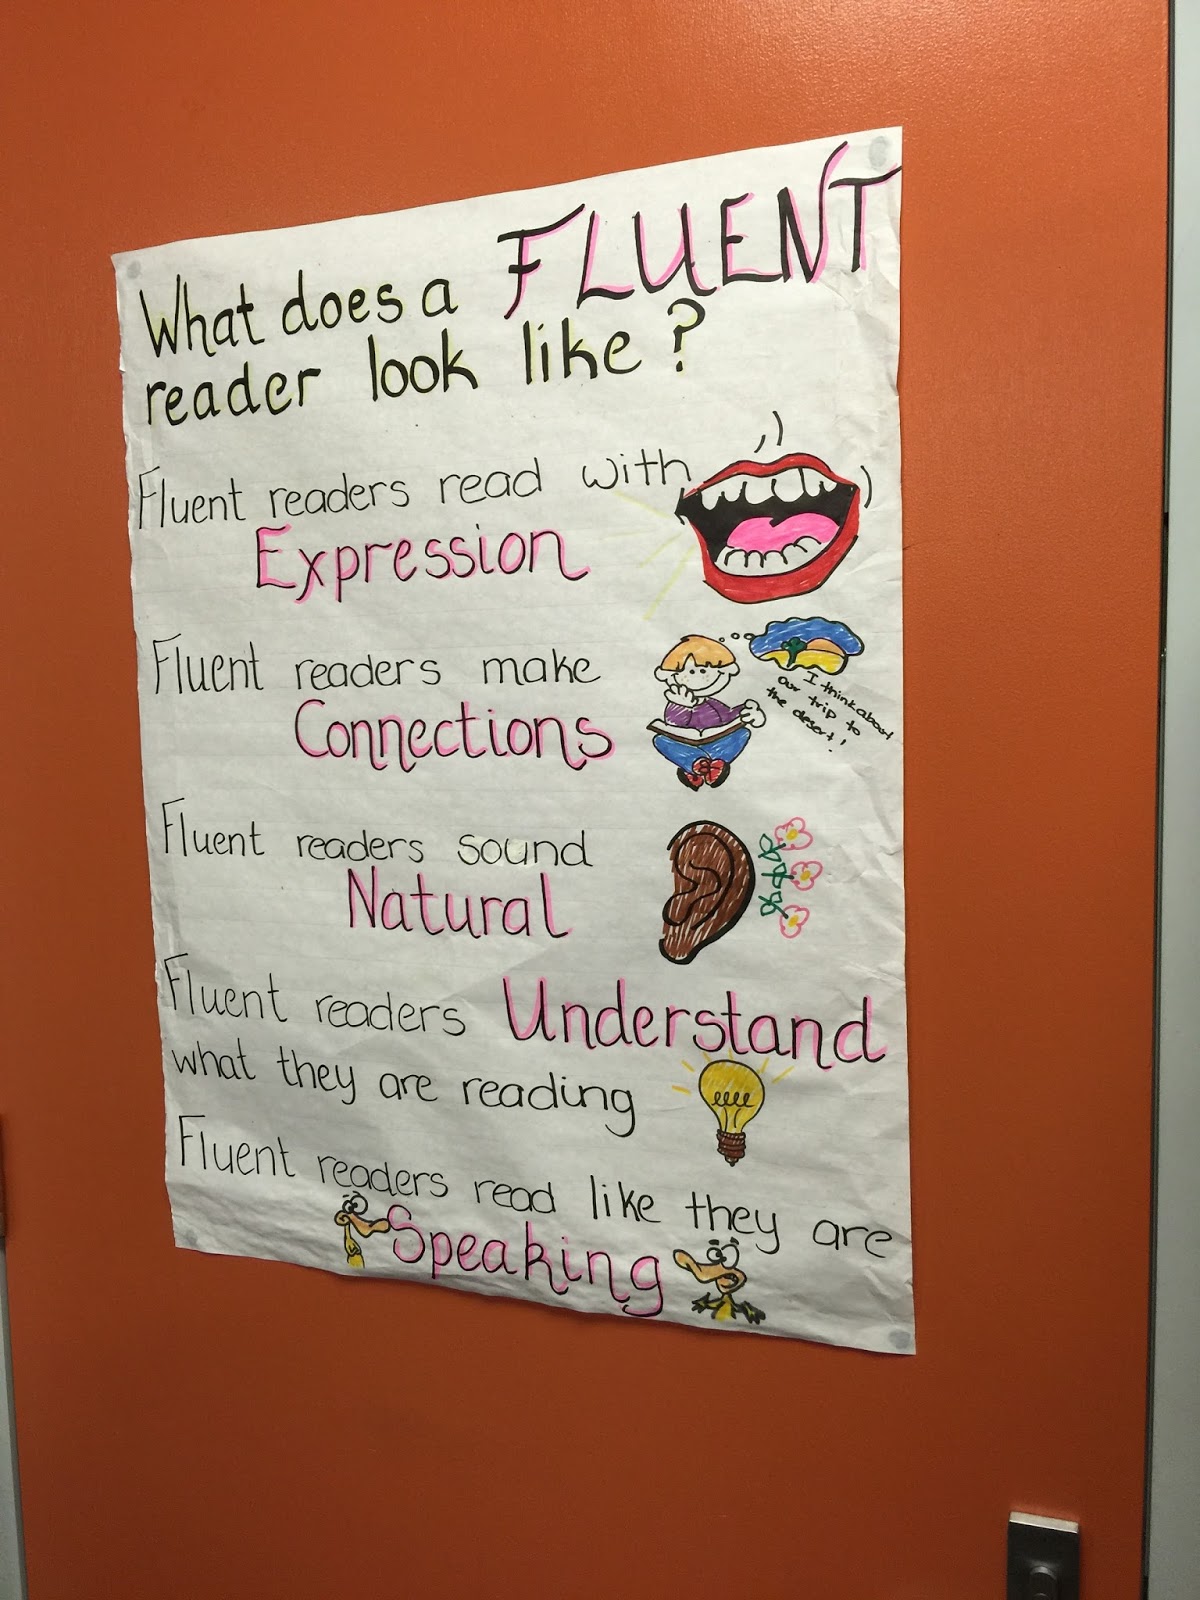 What does a FLUENT
reader look like?
Fluent readers read with
Expression
Fluent readers make
Connections
I think about
our trip to
the desert!
Fluent readers sound
Natural
Fluent readers Understand
what they are reading
Fluent readers read like they are
Speaking